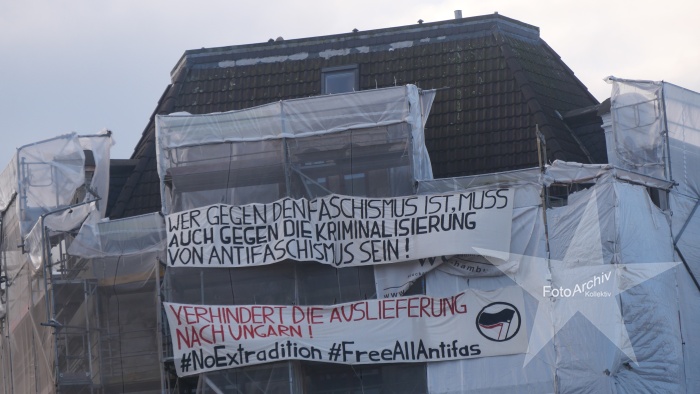 WER GEGEN DEN FASCHISMUS IST, MUSS
AUCH GEGEN DIE KRIMINALISIERUNG
VON ANTIFASCHISMUS SEIN!
VERHINDERT DIE AUSLIEFERUNG
NACH UNGARN!
#NoExtradition #FreeAllAntifas
FotoArchiv
Kollektiv